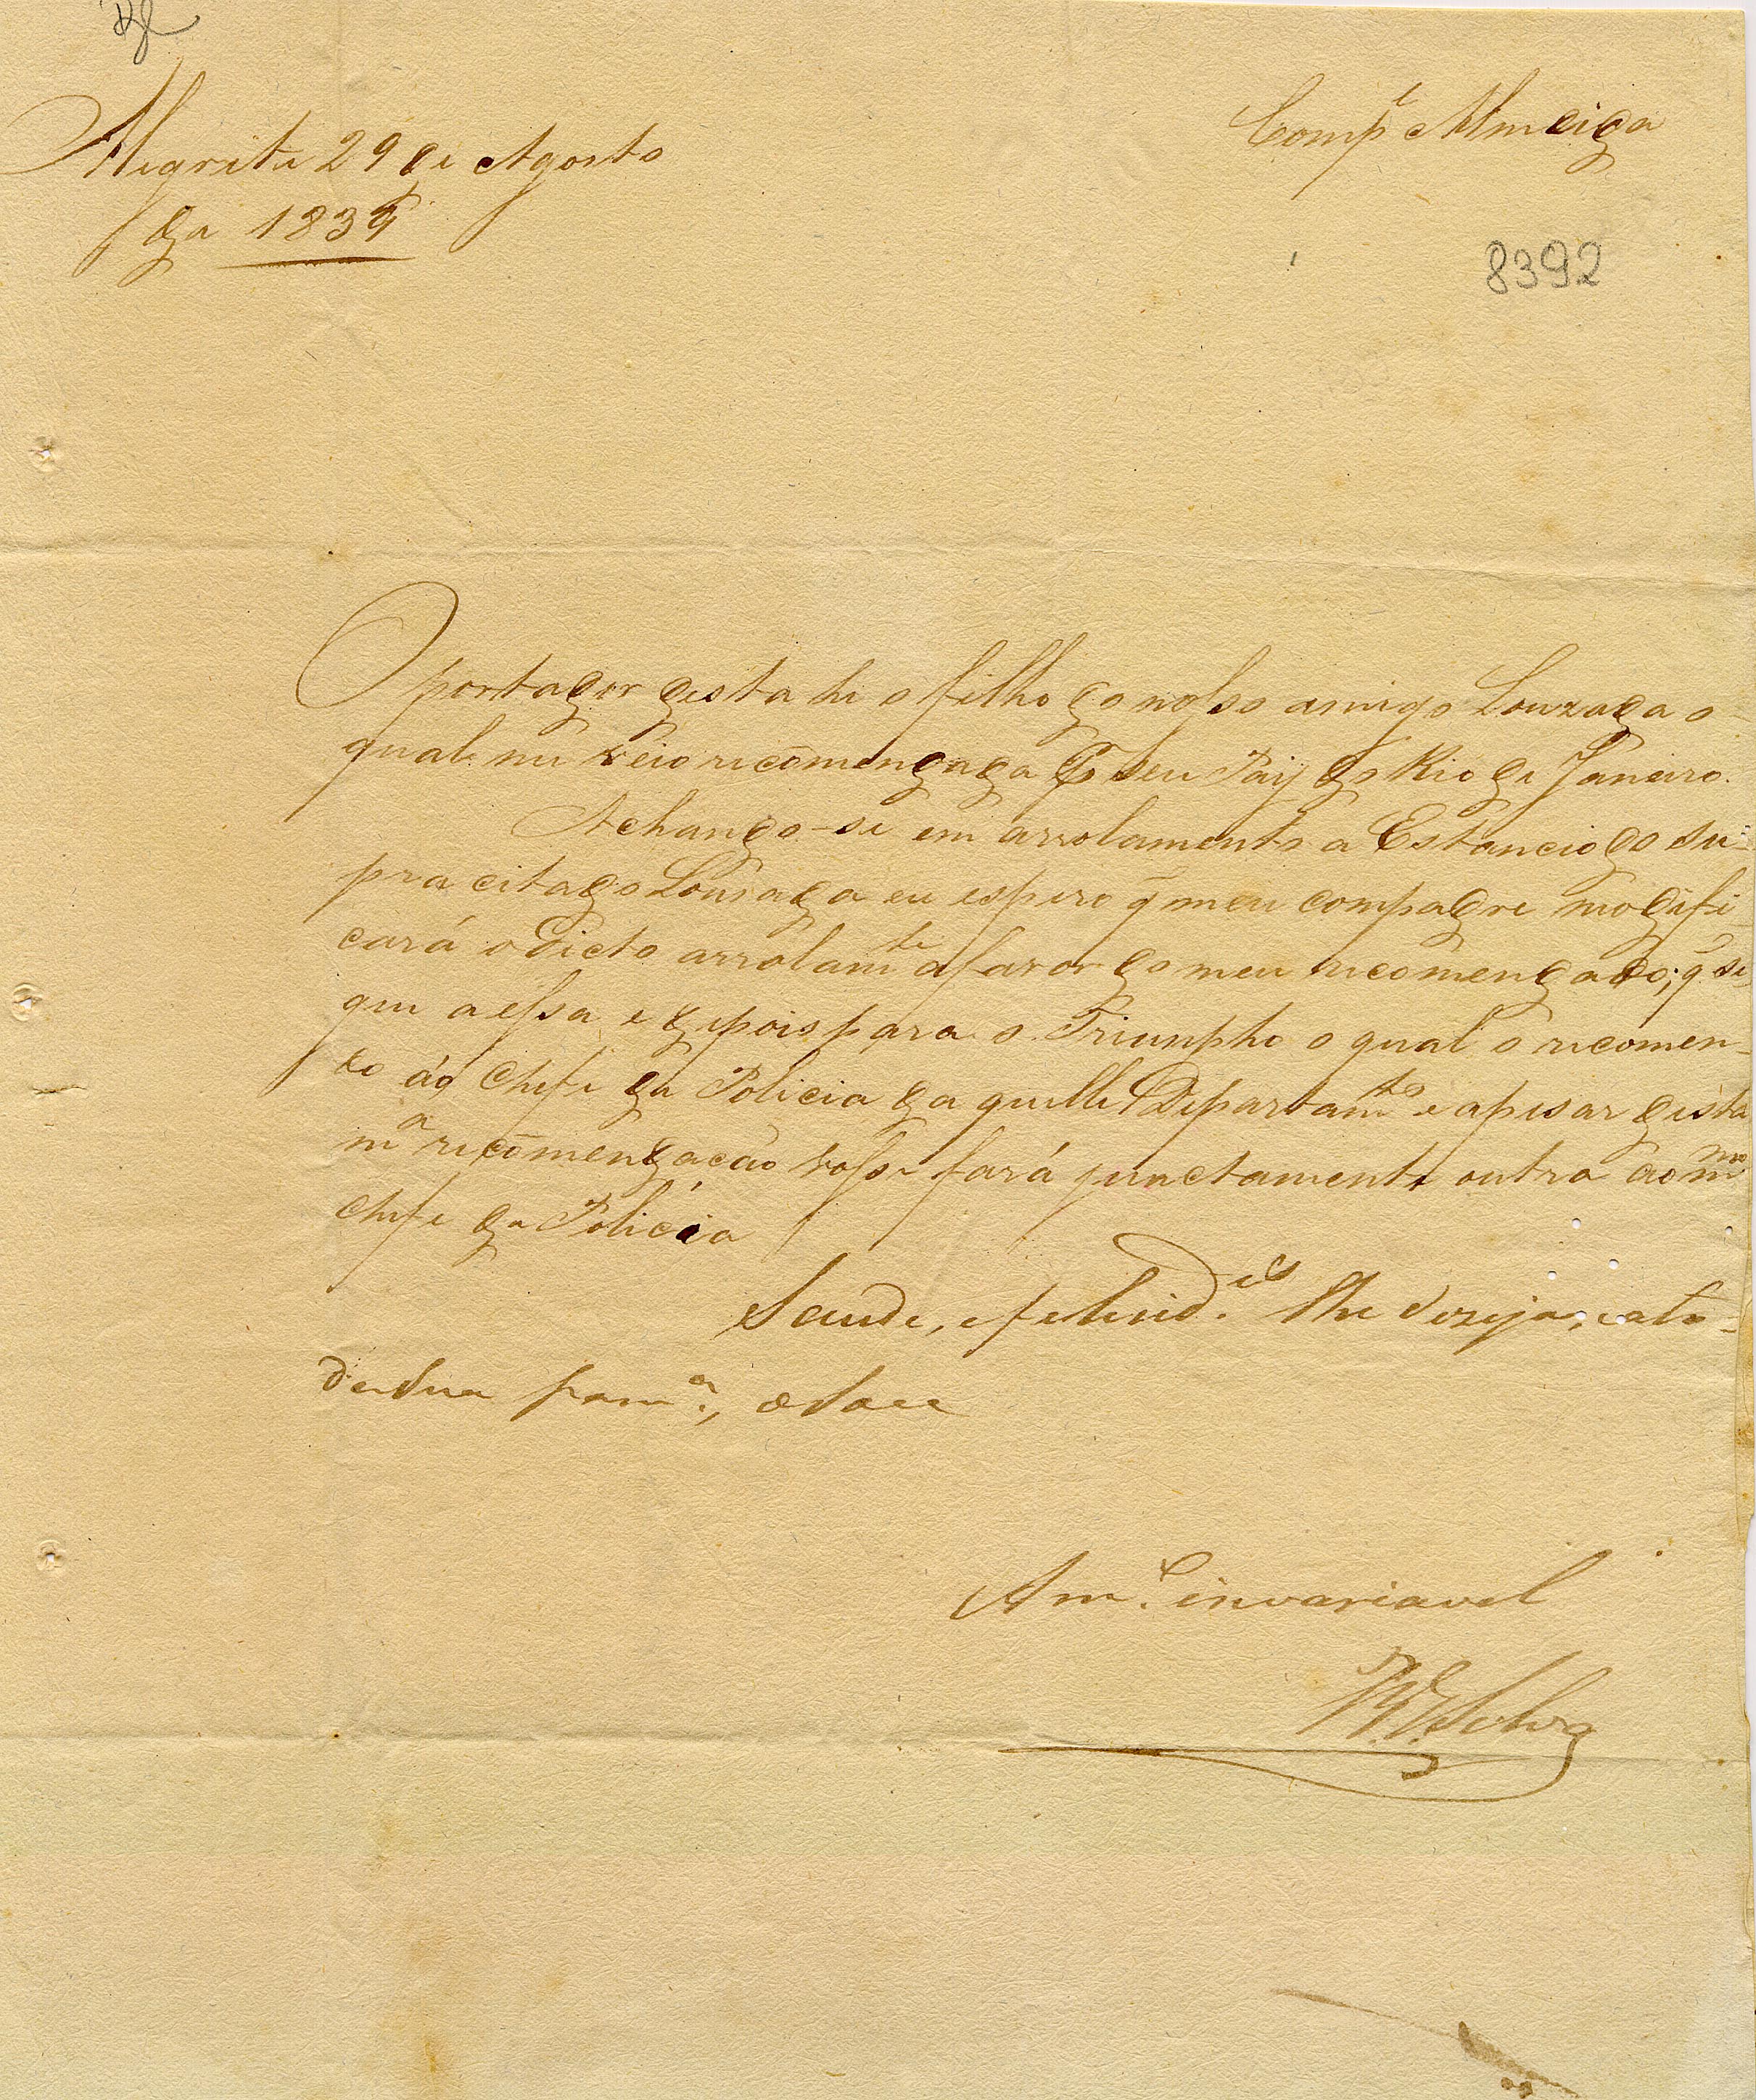 Compe Almeida
Alegrete 29 de Agosto
de 1839
8392
O portador desta he o filho do nosso amigo Louzada o
qual me veio recomendado de seu Pay do Rio de Janeiro.
Achando-se em arrolamento a Estancia do su-
pra citado Lousada eu espero q̃ meu compadre modifi-
cará o dicto arrolamto a favor do meu recomendado; q̃ se-
gue a essa e depois para o Triunpho o qual o recomen-
do áo Chefe da Policia da quelle Departamto e apesar desta
ma recomendacão vosse fará junctamente outra ao mmo
Chefe da Policia
Saude, e felicides lhe desejo, e a to-
da sua fama., e sou
Amo. invariavel